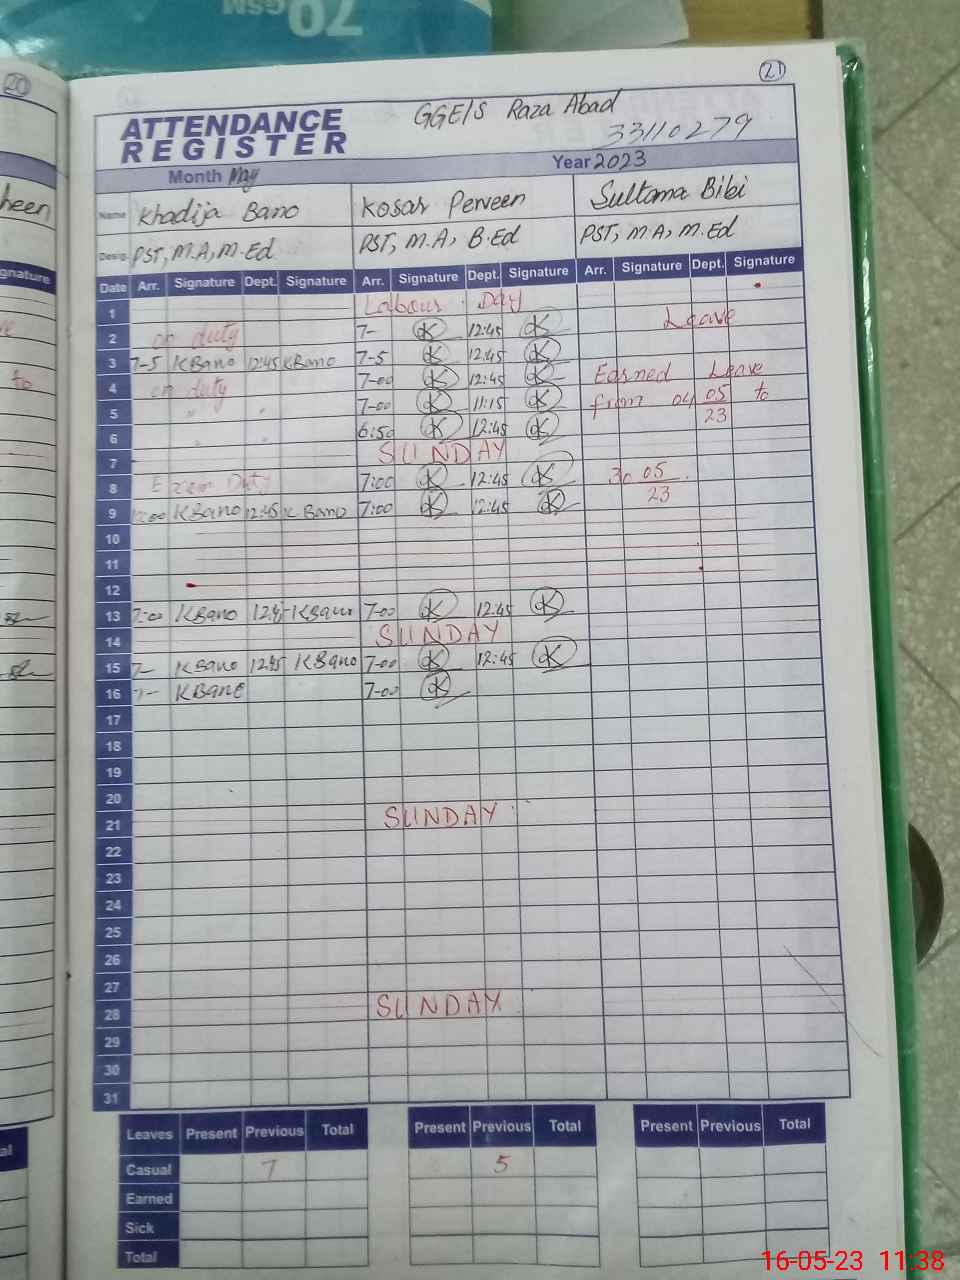 70
GSM
20
21
ATTENDANCE
REGISTER
GGE/S Raza Abad
33110279
Month May
Year 2023
heen
Name Khadija Bano Kosar Perveen Sultana Bibi
Desig. PST, M.A, M.Ed PST, M.A, B.Ed PST, M.A, M.Ed
gnature
Date Arr. Signature Dept. Signature Arr. Signature Dept. Signature Arr. Signature Dept. Signature
1 Labour Day
2 on duty 7- K 12:45 K Leave
3 7-5 KBano 12:45 KBano 7-5 K 12:45 K
4 on duty 7-00 K 12:45 K Earned Leave
to
5 " " 7-00 K 11:15 K from 04 05 to
23
6 " " 6:50 K 12:45 K
7 SUNDAY
8 Exam Duty 7:00 K 12:45 K 30 05
23
9 KBano 12:45 K Bano 7:00 K 12:45 K
10
11
12
13 7:00 KBano 12:45 KBano 7-00 K 12:45 K
14 SUNDAY
15 7- KBano 12:45 KBano 7-00 K 12:45 K
16 7- KBano 7-00 K
17
18
19
20
21 SUNDAY
22
23
24
25
26
27
28 SUNDAY
29
30
31
Leaves Present Previous Total Present Previous Total Present Previous Total
Casual 7 5
Earned
Sick
Total
al
16-05-23 11:38